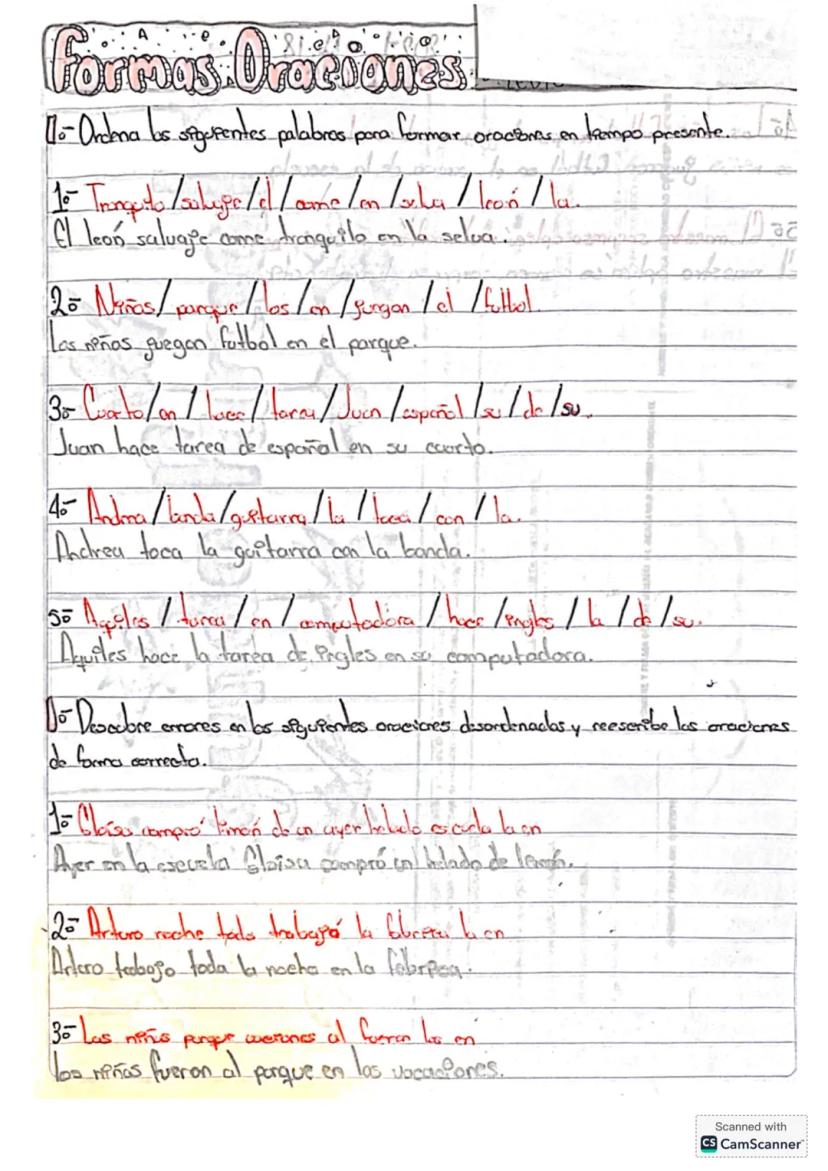 Formas Oraciones
I.- Ordena las siguientes palabras para formar oraciones en tiempo presente.
1.- Tranquilo/salvaje/el/come/en/selva/león/la.
El león salvaje come tranquilo en la selva.
2.- Niñas/parque/los/en/juegan/el/futbol.
Los niñas juegan futbol en el parque.
3.- Cuarto/en/hace/tarea/Juan/español/su/de/su.
Juan hace tarea de español en su cuarto.
4.- Andrea/banda/guitarra/la/toca/con/la.
Andrea toca la guitarra con la banda.
5.- Aquiles/tarea/en/computadora/hace/ingles/la/de/su.
Aquiles hace la tarea de ingles en su computadora.
II.- Descubre errores en las siguientes oraciones desordenadas y reescribe las oraciones
de forma correcta.
1.- Eloisa compró limón de un ayer helado escuela la en
Ayer en la escuela Eloisa compró un helado de limón.
2.- Arturo noche toda trabajó la fabrica la en
Arturo trabajo toda la noche en la fabrica.
3.- Las niñas parque vacaciones al fueron las en
Los niñas fueron al parque en las vacaciones.
Scanned with
CS CamScanner